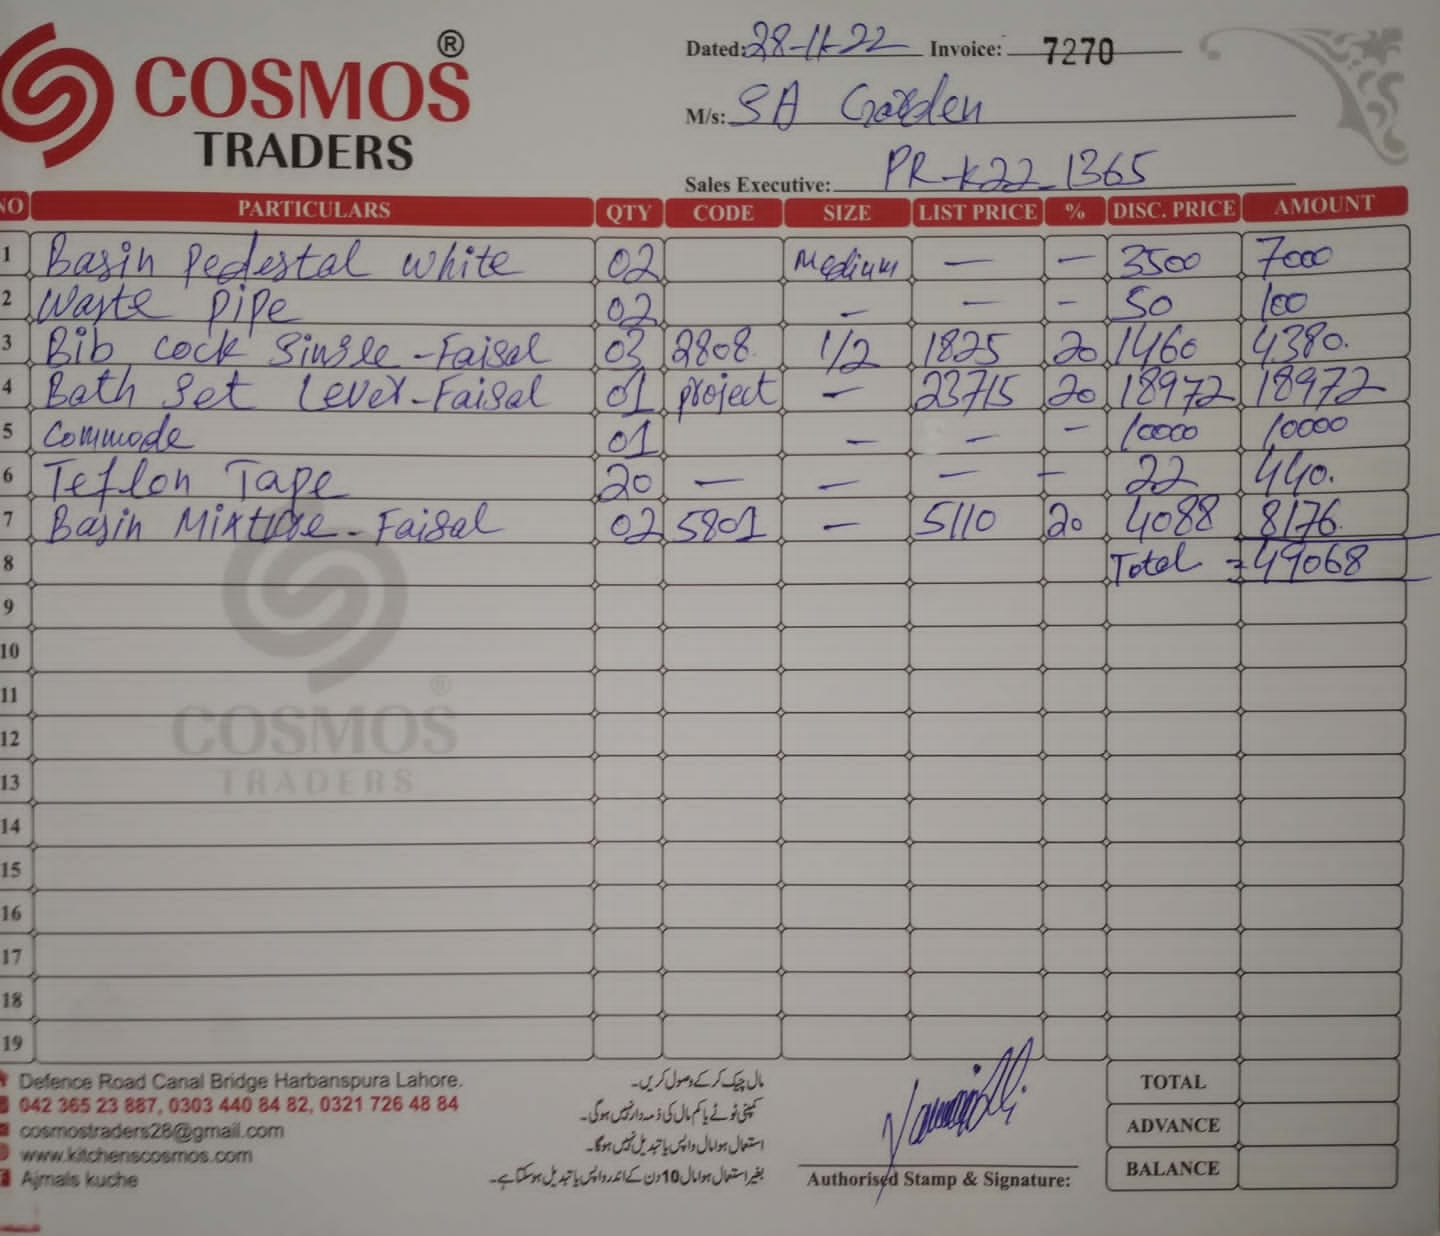 COSMOS ®
TRADERS
Dated: 28-11-22 Invoice: 7270
M/s: SA Garden
Sales Executive: PR-K22-1365
NO PARTICULARS QTY CODE SIZE LIST PRICE % DISC. PRICE AMOUNT
1 Basin Pedestal White 02 Medium — — 3500 7000
2 Waste Pipe 02 — — — 50 100
3 Bib Cock Single - Faisal 03 2808 1/2 1825 20 1460 4380.
4 Bath Set Lever - Faisal 01 project — 23715 20 18972 18972
5 Commode 01 — — — 10000 10000
6 Teflon Tape 20 — — — — 22 440.
7 Basin Mixture - Faisal 02 5801 — 5110 20 4088 8176.
8 Total = 49068
9
10
11
12
13
14
15
16
17
18
19
COSMOS ®
TRADERS
Defence Road Canal Bridge Harbanspura Lahore.
042 365 23 887, 0303 440 84 82, 0321 726 48 84
cosmostraders28@gmail.com
www.kitchenscosmos.com
Ajmals kuche
مال چیک کر کے وصول کریں۔
کمپنی ٹوٹے یا کم مال کی ذمہ دار نہیں ہوگی۔
استعمال ہوا مال واپس یا تبدیل نہیں ہوگا۔
بغیر استعمال ہوا مال 10 دن کے اندر واپس یا تبدیل ہوسکتا ہے۔
Authorised Stamp & Signature:
TOTAL
ADVANCE
BALANCE